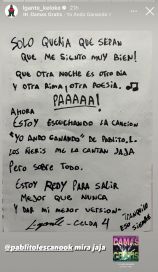 lganto_keloke 21h
Damas Gratis · Yo Ando Ganando
SOLO QUERÍA QUE SEPAN
QUE ME SIENTO MUY BIEN!
QUE OTRA NOCHE ES OTRO DÍA
Y OTRA RIMA, OTRA POESÍA.
PAAAAA!
AHORA
ESTOY ESCUCHANDO LA CANCIÓN
"YO ANDO GANANDO" DE PABLITO, L.
LOS NERIS ME LA CANTAN JAJA
PERO SOBRE TODO.
ESTOY REDY PARA SALIR
MEJOR QUE NUNCA
Y DAR MI MEJOR VERSIÓN
L-gante - CELDA 4
TRANQUILO
ESO SIEMPRE
@pablitolescanook mira jaja
DAMAS
GRATIS